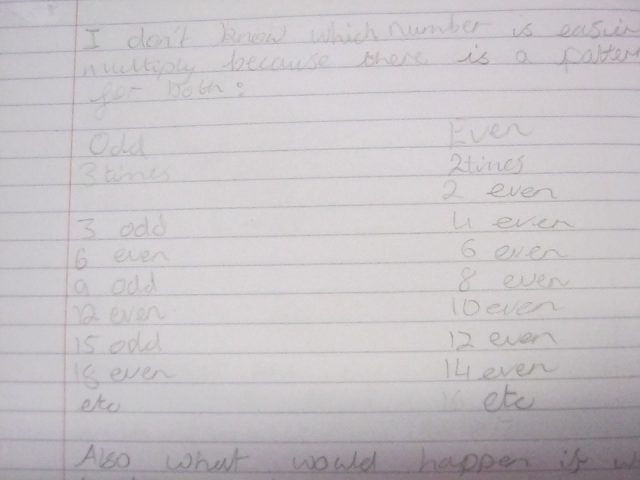 I don't know which number is easier
multiply because there is a pattern
for both:
Odd Even
3 times 2 times
2 even
3 odd 4 even
6 even 6 even
9 odd 8 even
12 even 10 even
15 odd 12 even
18 even 14 even
etc etc
Also what would happen if